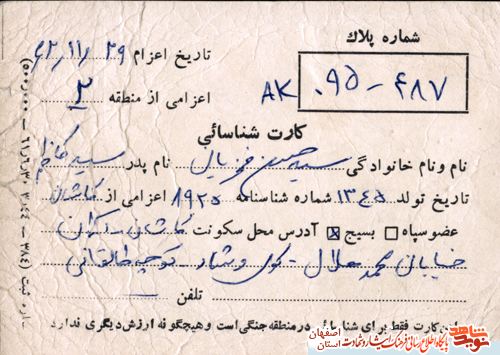 شماره پلاك
AK ۰۹۵-۴۸۷
تاریخ اعزام ۶۲/۱۱/۲۹
اعزامی از منطقه ۲
کارت شناسائی
نام و نام خانوادگی سید حسین نام پدر سید کاظم
تاریخ تولد ۱۳۴۵ شماره شناسنامه ۱۹۲۵ اعزامی از کاشان
عضو سپاه بسیج آدرس محل سکونت کاشان -
خیابان محمد هلال - کوی - کوچه طالقانی
تلفن
این کارت فقط برای شناسائی در منطقه جنگی است و هیچگونه ارزش دیگری ندارد
نوید شاهد
پایگاه اطلاع رسانی فرهنگ ایثار و شهادت
استان اصفهان